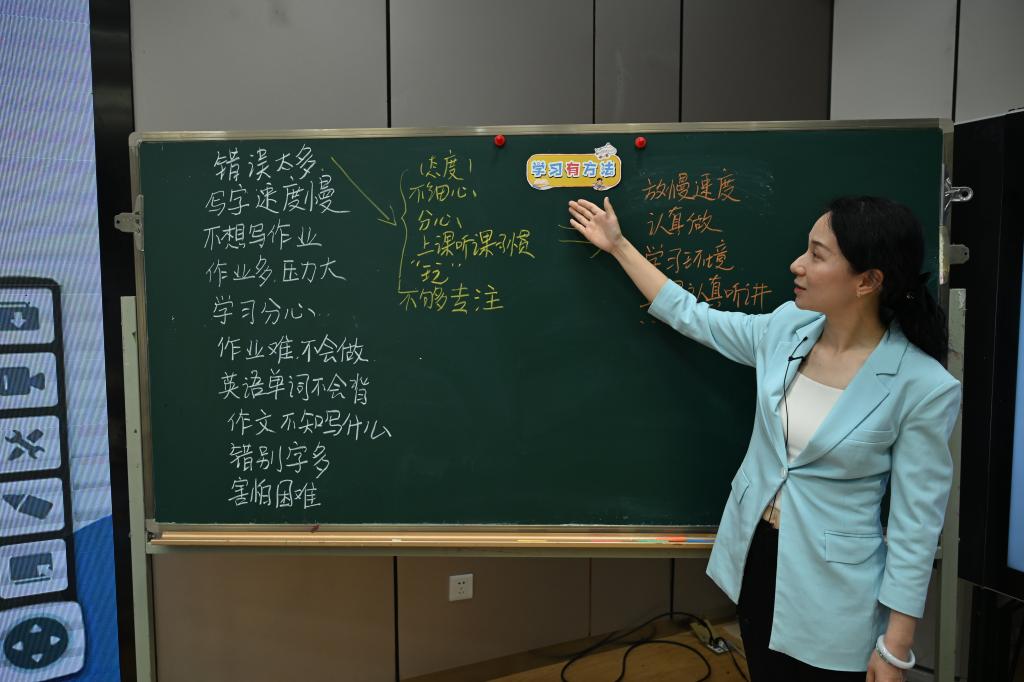 错误太多
写字速度慢
不想写作业
作业多.压力大
学习分心
作业难.不会做
英语单词不会背
作文不知写什么
错别字多
害怕困难
态度
不细心
分心
上课听课习惯
不够专注
学习有方法
放慢速度
认算做
学习环境
认真听讲